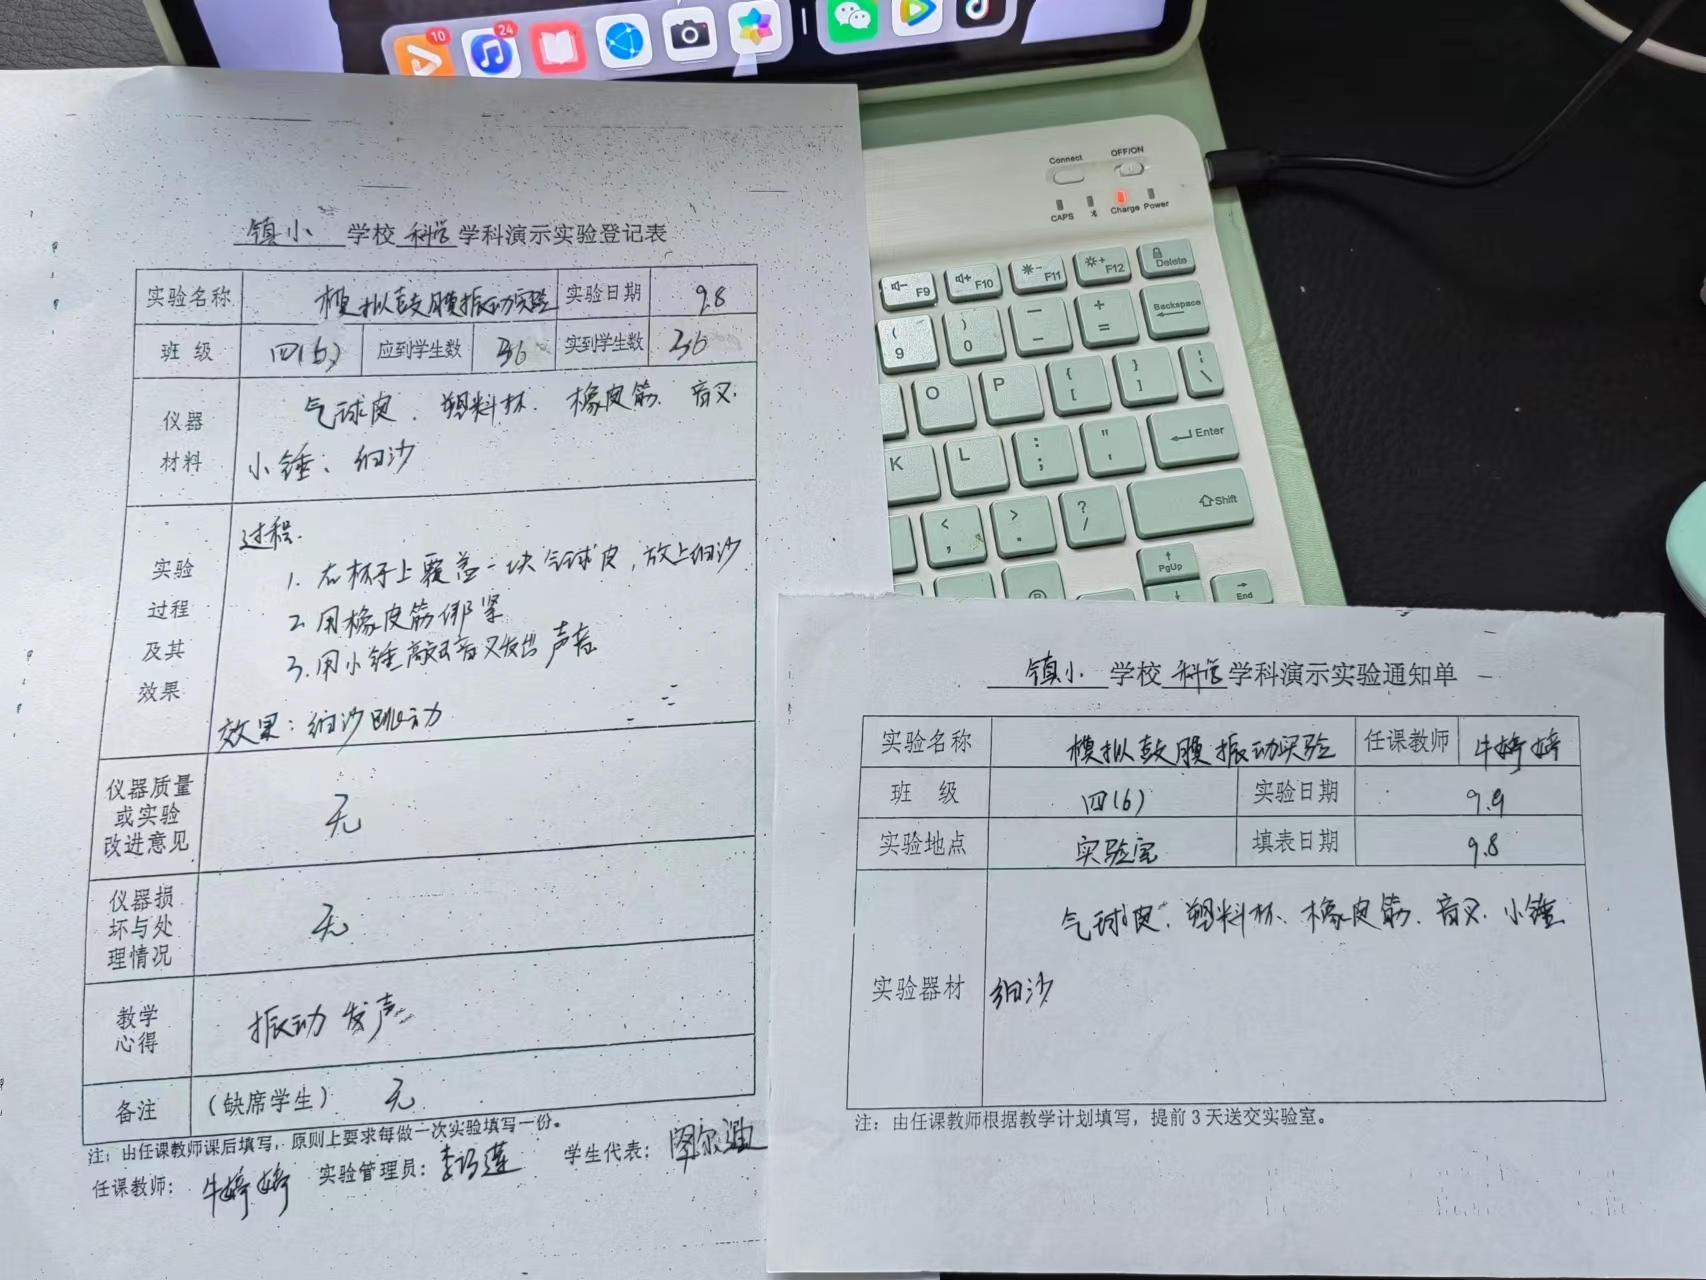 10
24
镇小 学校 科学 学科演示实验登记表
实验名称 模拟鼓膜振动实验 实验日期 9.8
班 级 四(6) 应到学生数 36 实到学生数 36
仪器材料 气球皮、塑料杯、橡皮筋、音叉、
小锤、细沙
实验过程及其效果
过程:
1. 在杯子上覆盖一块气球皮,放上细沙
2. 用橡皮筋绑紧
3. 用小锤敲击音叉发出声音
效果:细沙跳动
仪器质量或实验改进意见 无
仪器损坏与处理情况 无
教学心得 振动发声
备注 (缺席学生) 无
注:由任课教师课后填写,原则上要求每做一次实验填写一份。
任课教师: 牛婷婷 实验管理员: 学生代表:
Connect OFF/ON
CAPS Charge Power
F9 F10 F11 F12 Delete
( 9 ) 0 — _ + = Backspace
O P { [ } ] | \
K L : ; " ' Enter
< , > . ? / Shift
PgUp
End
镇小 学校 科学 学科演示实验通知单
实验名称 模拟鼓膜振动实验 任课教师 牛婷婷
班 级 四(6) 实验日期 9.9
实验地点 实验室 填表日期 9.8
实验器材 气球皮、塑料杯、橡皮筋、音叉、小锤
细沙
注:由任课教师根据教学计划填写,提前3天送交实验室。